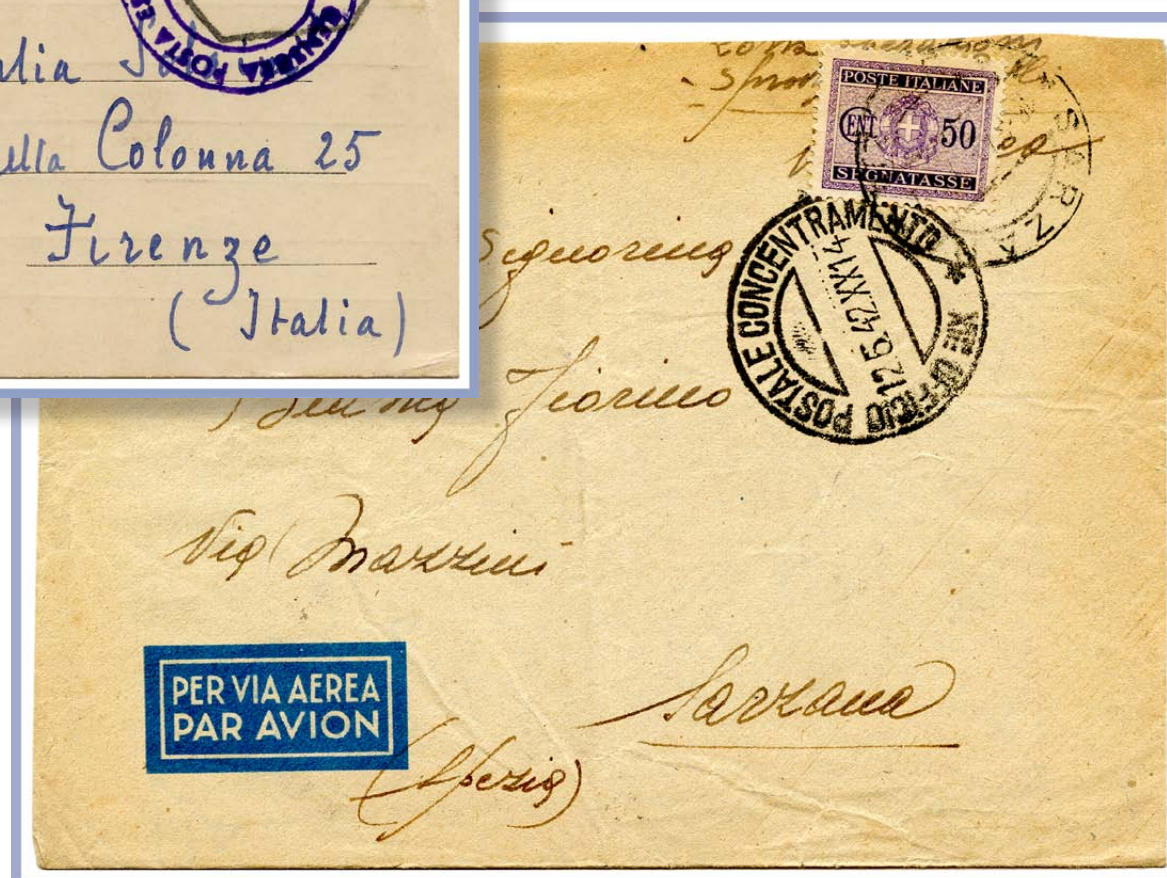 CENSURA POSTA ES
alia
ella Colonna 25
Firenze
(Italia)
POSTE ITALIANE
CENT. 50
SEGNATASSE
SARZA
UFFICIO POSTALE CONCENTRAMENTO
12.5.42.XX 14
Signorina
Fiorino
Via Mazzini
Sarzana
(Spezia)
PER VIA AEREA
PAR AVION